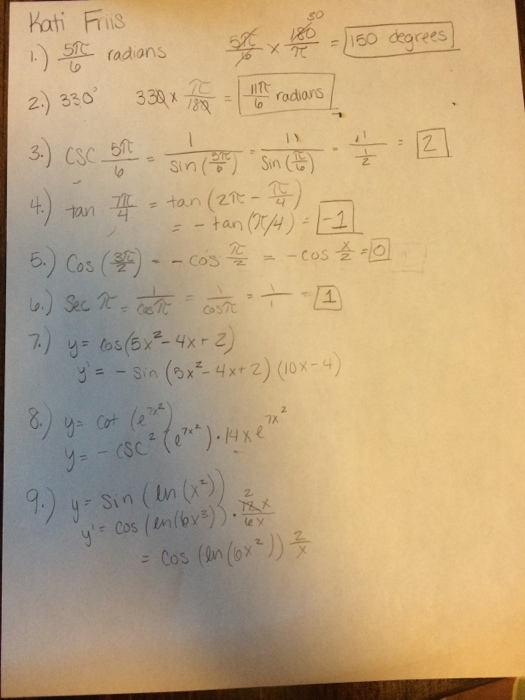 Kati Friis
1.) 5π/6 radians 5π/6 × 180/π 30 = 150 degrees
2.) 330° 330 × π/180 = 11π/6 radians
3.) CSC 5π/6 = 1/Sin(5π/6) = 1/Sin(π/6) = 1/(1/2) = 2
4.) tan 7π/4 = tan (2π - π/4)
= - tan (π/4) = -1
5.) Cos (3π/2) = - cos π/2 = - cos π/2 = 0
6.) Sec π = 1/cos π = 1/cos π = 1/1 = 1
7.) y = cos(5x² - 4x + 2)
y' = - Sin (5x² - 4x + 2) (10x - 4)
8.) y = cot (e^7x²)
y = - csc² (e^7x²) · 14x e^7x²
9.) y = Sin (ln (x²))
y' = cos (ln(6x²)) · 12x/6x 2
= Cos (ln (6x²)) 2/x